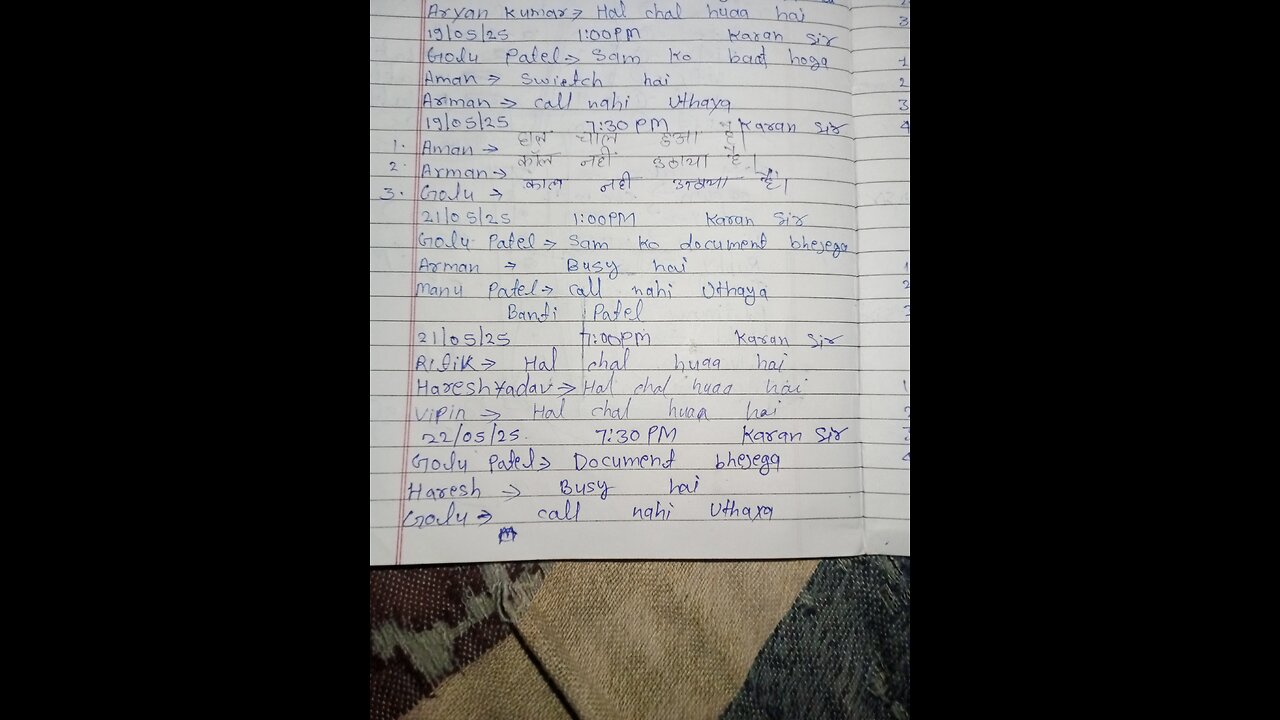 Aryan Kumar → Hal chal huaa hai
3
19/05/25 1:00PM Karan Sir
Golu Patel → Sam ko baat hoga
1
Aman → Swietch hai
2
Arman → call nahi Uthaya
3
19/05/25 7:30 PM Karan Sir
4
1. Aman → हाल चाल हुआ है।
2. Arman → कॉल नहीं उठाया है।
3. Golu → काल नही उठाया है।
21/05/25 1:00PM Karan Sir
Golu Patel → Sam ko document bhejega
Arman → Busy hai
1
Manu Patel → call nahi Uthaya
2
Banti Patel
21/05/25 7:00PM Karan Sir
Ritik → Hal chal huaa hai
Haresh Yadav → Hal chal huaa hai
1
Vipin → Hal chal huaa hai
22/05/25. 7:30 PM Karan Sir
Golu Patel → Document bhejega
4
Haresh → Busy hai
Golu → call nahi Uthaya